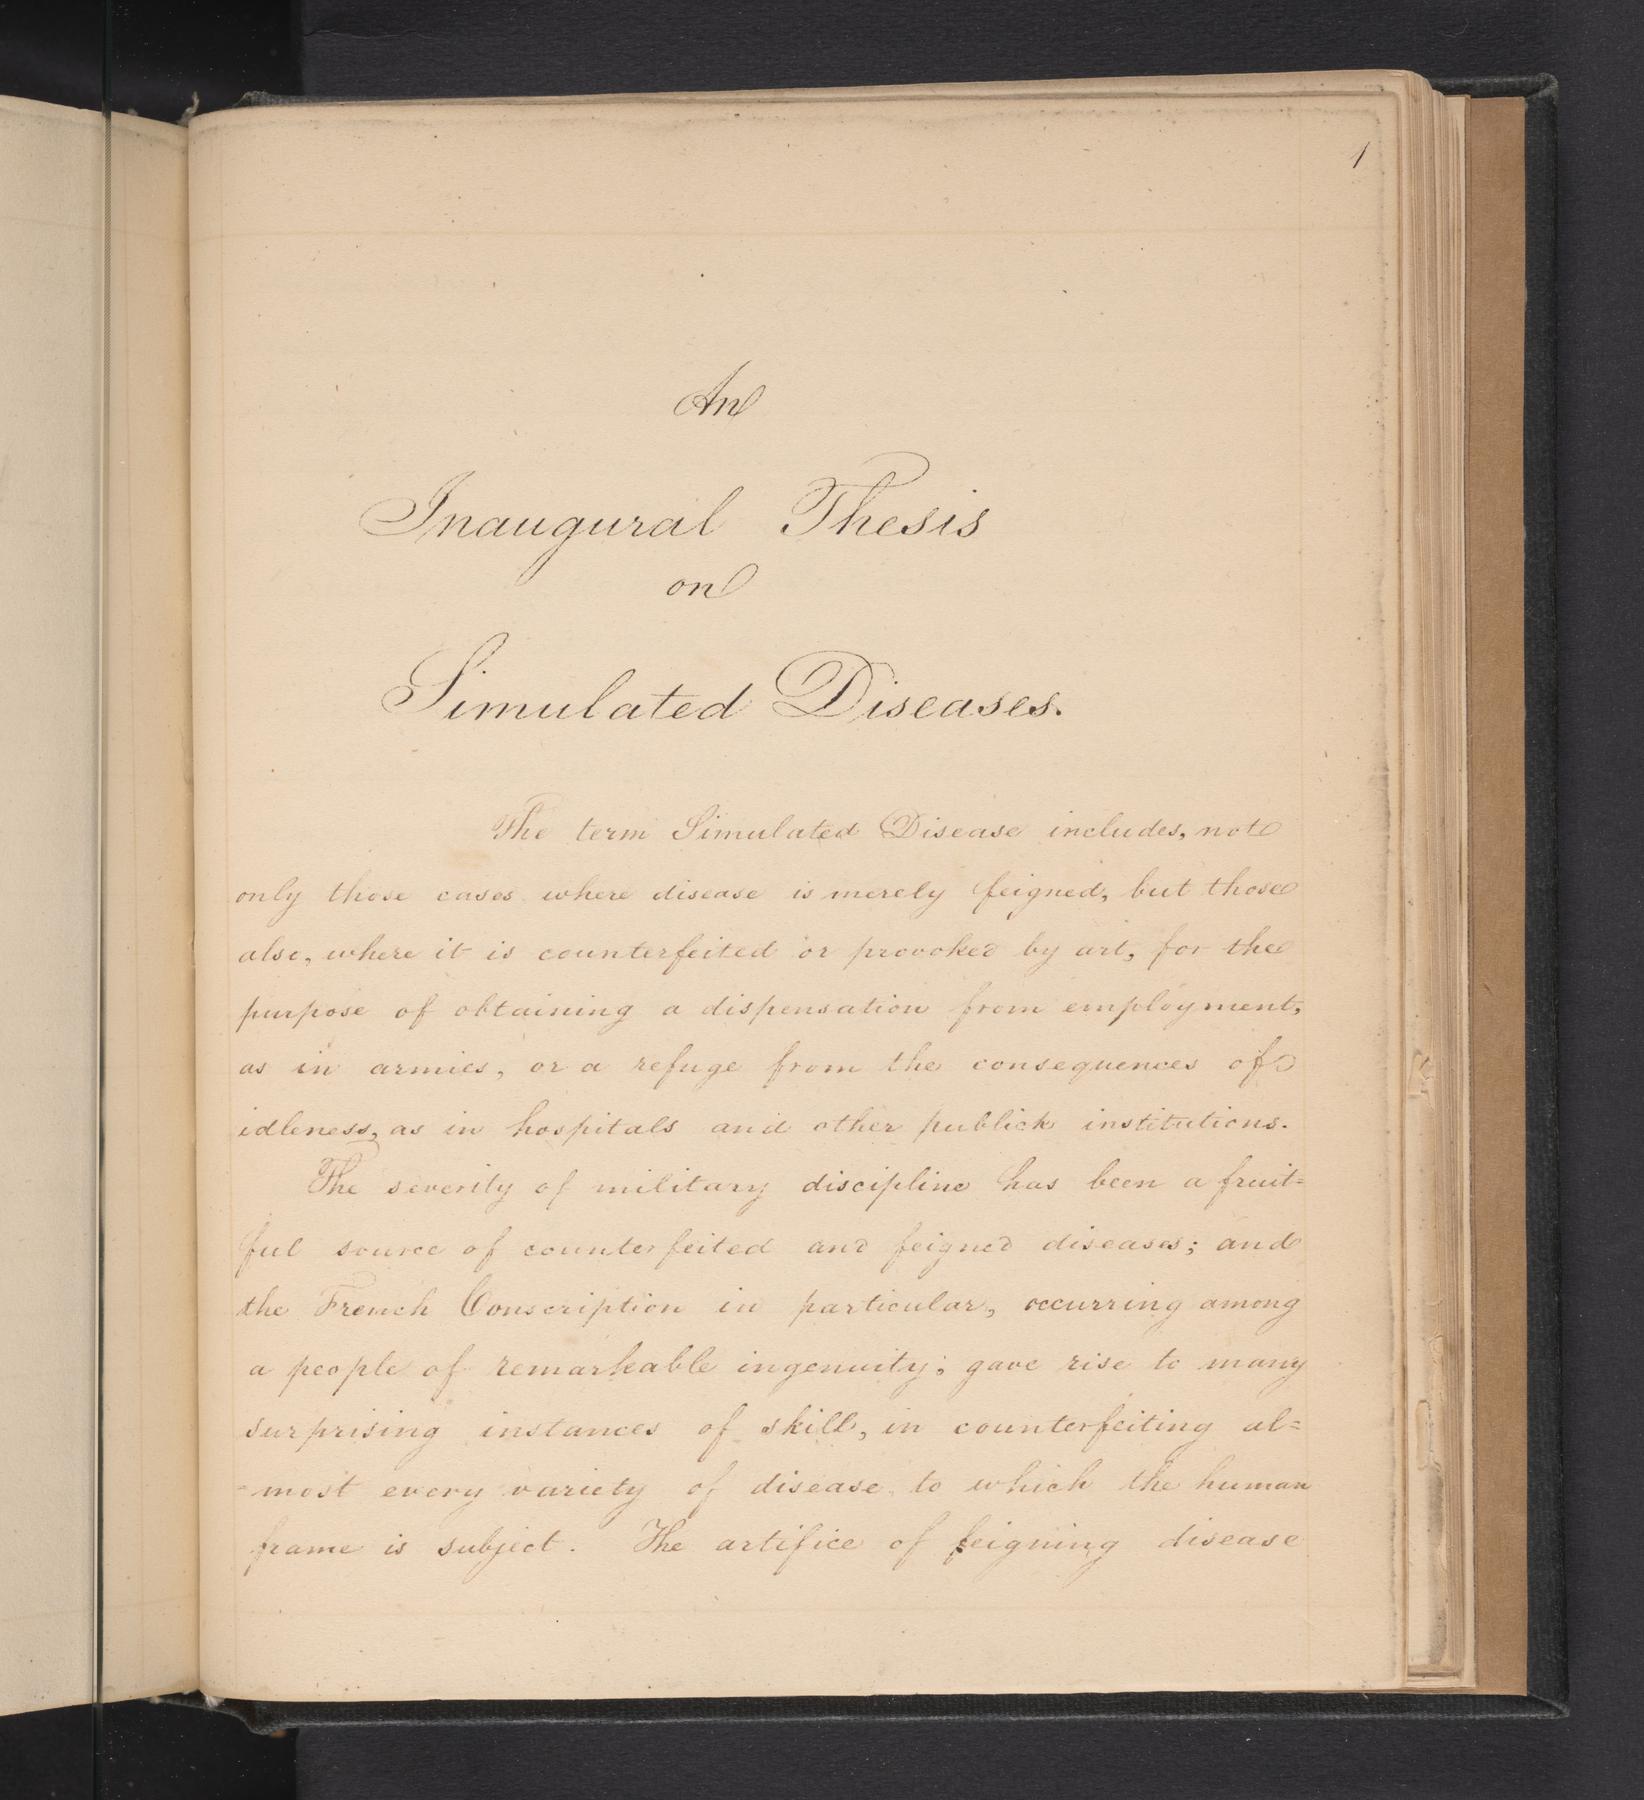 1
An
Inaugural Thesis
on
Simulated Diseases.
The term Simulated Disease includes, not
only those cases where disease is merely feigned, but those
also, where it is counterfeited or provoked by art, for the
purpose of obtaining a dispensation from employment,
as in armies, or a refuge from the consequences of
idleness, as in hospitals and other publick institutions.
The severity of military discipline has been a fruit=
ful source of counterfeited and feigned diseases; and
the French Conscription in particular, occurring among
a people of remarkable ingenuity; gave rise to many
surprising instances of skill, in counterfeiting al=
=most every variety of disease to which the human
frame is subject. The artifice of feigning disease